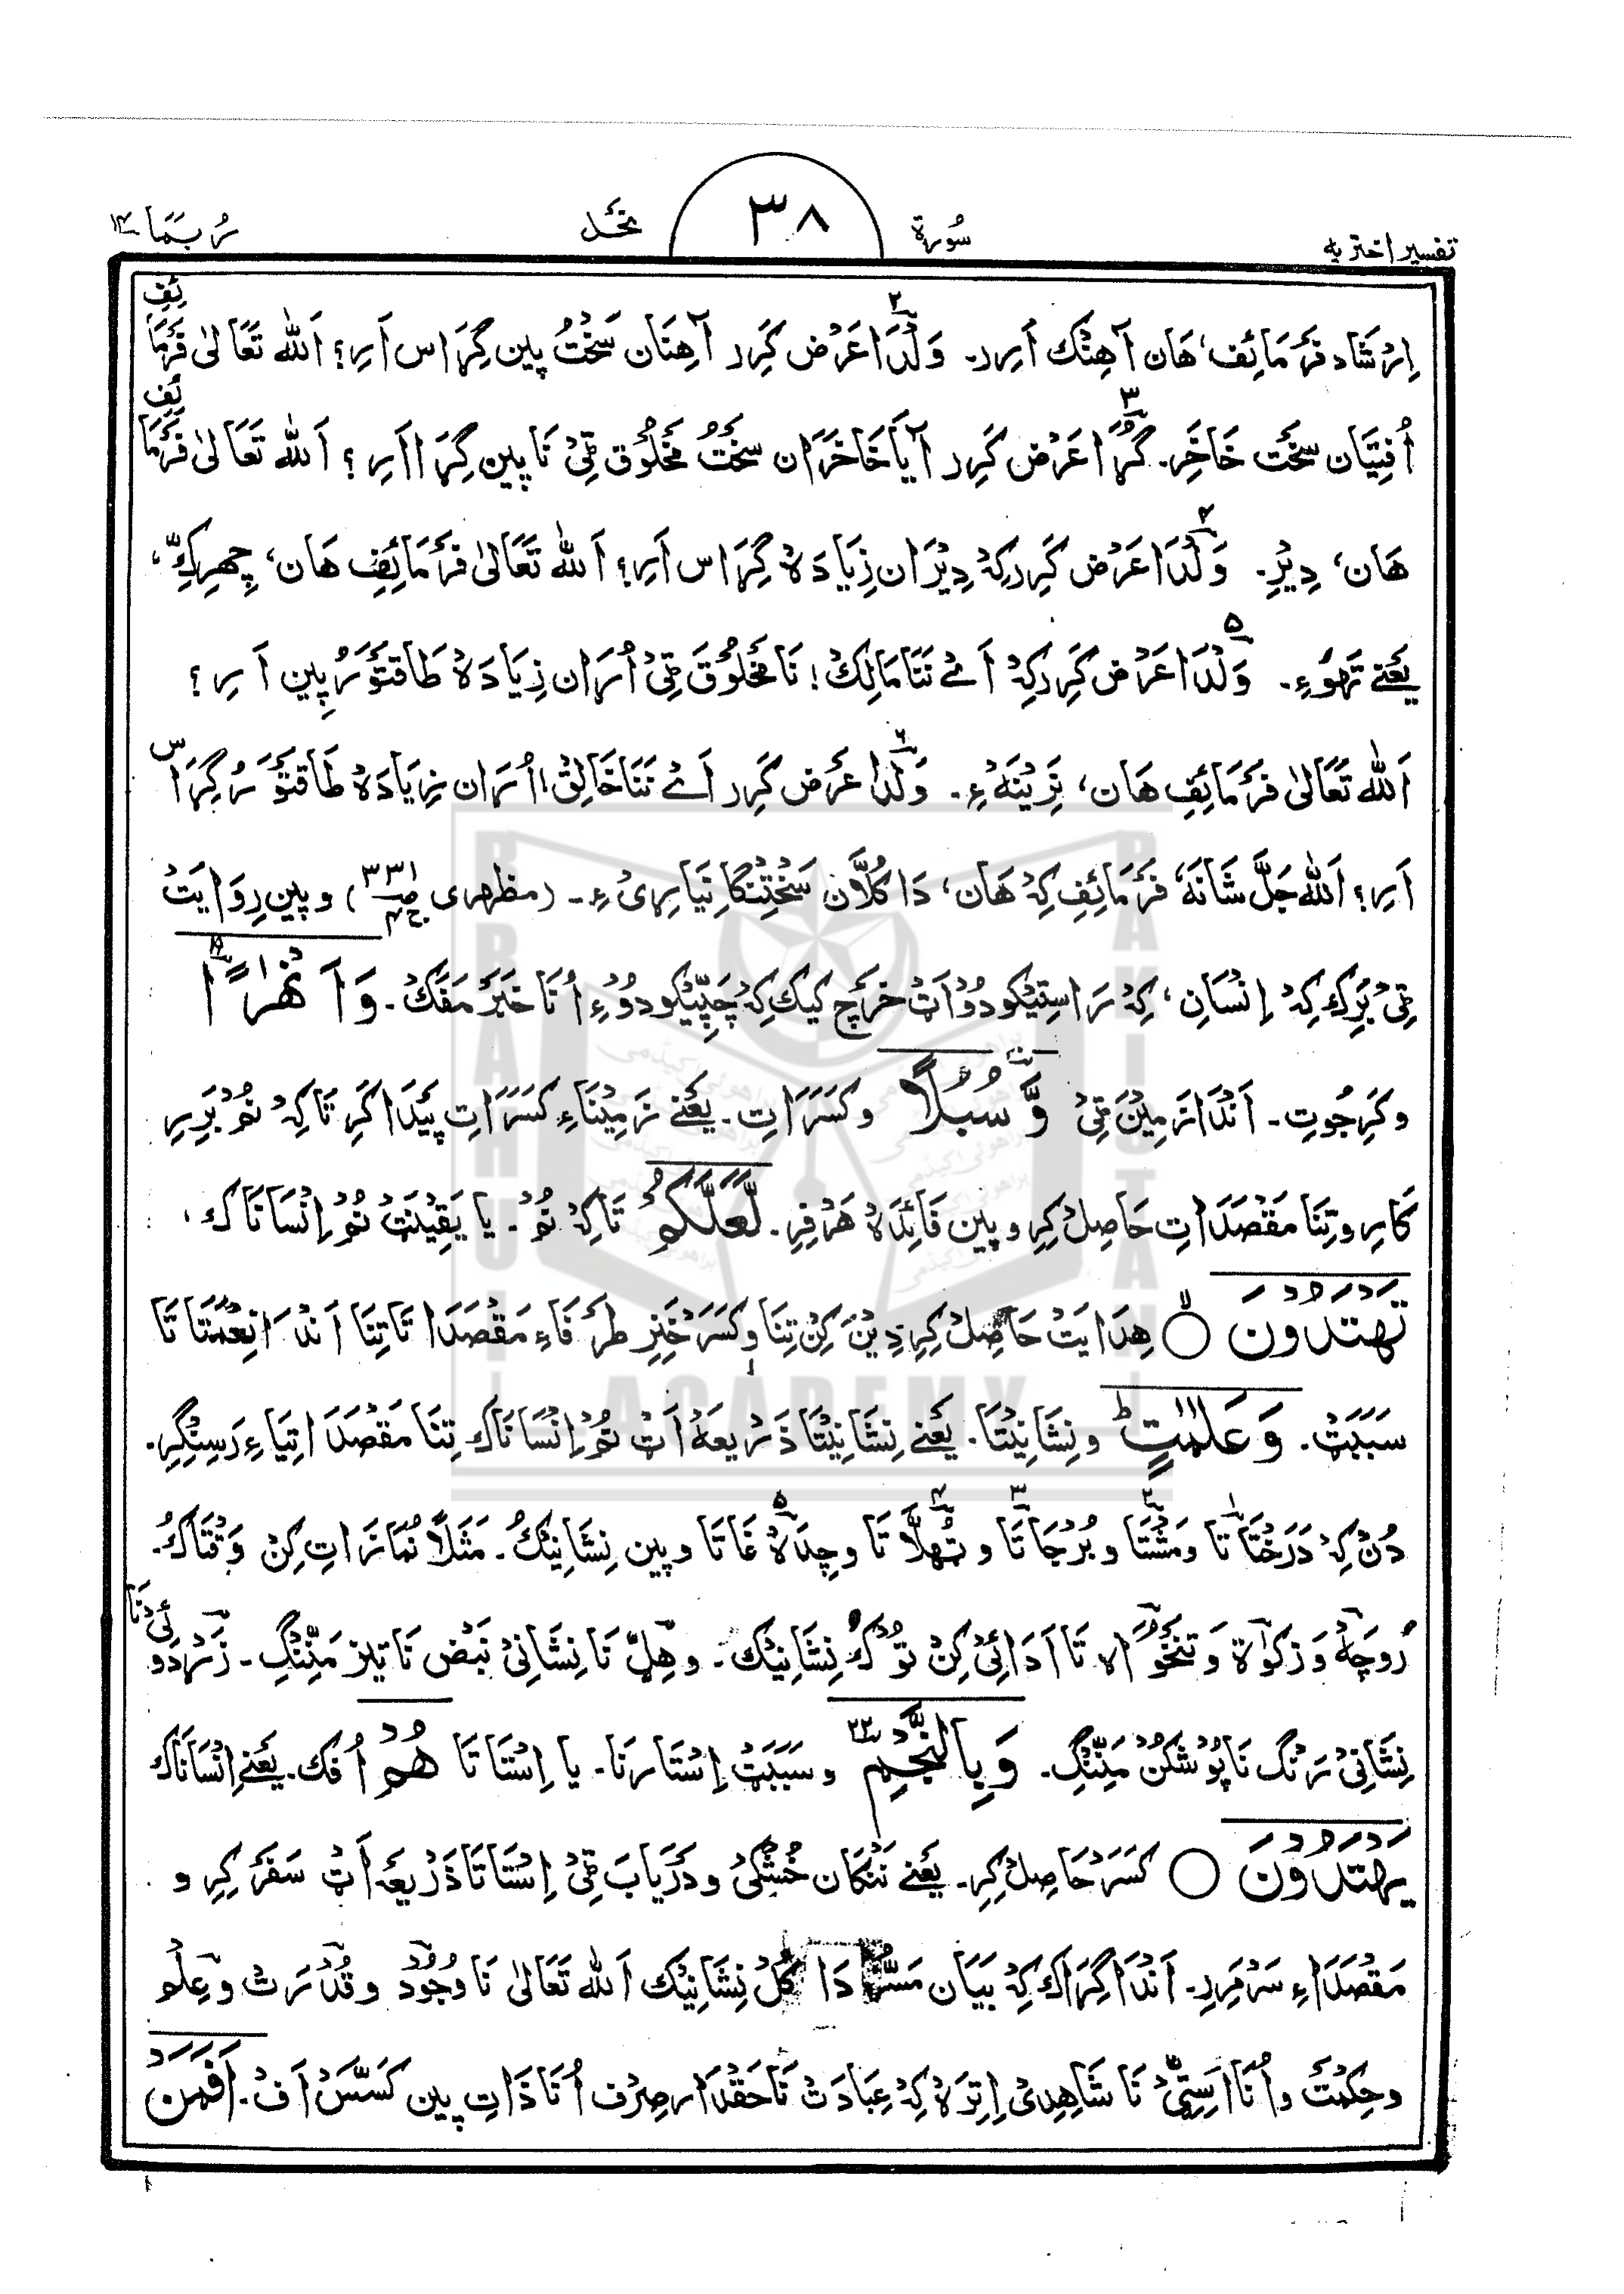 تفسیر اختریه سُورة ٣٨ نَحْل رُبَمَا ١٤
اِرْشَاد فَرْمَائِف، هَان آهِنْک اَرِر۔ وَلْدَا عَرْض کَرِر آهِنَان سَخْتُ پِین گِرَا اس اَرِ؟ اَللّٰه تَعَالیٰ فَرْمَائِفِ
اُفِتِیَان سَخْت خَاخَرِ۔ گُڑَا عَرْض کَرِر آیَا خَاخَرَان سَخْتُ مَخْلُوق ٹِیْ نَا پِین گِرَا اَرِ؟ اَللّٰه تَعَالیٰ فَرْمَائِفِ
هَان، دِیْرِ۔ وَلْدَا عَرْض کَرِر کِهْ دِیْرَان زِیَادَهْ گِرَا اس اَرِ؟ اَللّٰه تَعَالیٰ فَرْمَائِفِ هَان، چِهِرِکِّ،
یَعْنِے تَهوءِ۔ وَلْدَا عَرْض کَرِر کِهْ اَےْ نَنَا مَالِکْ! نَا مَخْلُوْقَ ٹِیْ اُرَان زِیَادَهْ طَاقتْوَرُ پِین اَرِ؟
اَللّٰه تَعَالیٰ فَرْمَائِفِ هَان، نَرِیْنَهءِ۔ وَلْدَا عَرْض کَرِر اَےْ نَنَا خَالِقْ! اُرَان زِیَادَهْ طَاقتْوَرُ گِرَا س
اَرِ؟ اَللّٰه جَلَّ شَانَهٗ فَرْمَائِفِ کِهْ هَان، دَا کُلَّان سَخْتِنْگَا نِیَارِیْ ءِ۔ (مظهری صـ ٣٣١ ج ٤) و پِین رِوَایَتْ
ٹِیْ بَرِکْ کِهْ اِنْسَان، کِهْ رَاسِتِیکو دُوْاَٹْ خَرْچ کیک کِهْ چَپِّیکو دُوْءِ اُنَا خَبَرْ مَفَکْ۔ وَاَنْهٰرًا
و کَرِ جُوتِ۔ اَنْدَا زَمِیْنَ ٹِیْ وَّسُبُلًا و کَسَرَاتِ۔ یَعْنِے زَمِیْنَاءِ کَسَرَاتِ پَیْدَا کَرِ تَاکِهْ نُمْ بَرِرِ
کَارِ و تِنَا مَقْصَدَاتِ حَاصِلْ کِرِ و پِین فَائِدَهْ هَرْفِرِ۔ لَّعَلَّکُمْ تَاکِهْ نُمْ۔ یا یَقِیْنَتْ نُمْ اِنْسَانَاک،
تَهْتَدُوْنَ ○ هِدَایَتْ حَاصِلْ کِرِ دِیْنَ کِنْ تِنَا و کَسَرْ خَنِرِ طَرْفَاءِ مَقْصَدَا تَا تِنَا اَنْدَا نِعْمَتَا تَا
سَبَبَٹْ۔ وَعَلٰمٰتٍ و نِشَانِیْتَا۔ یَعْنِے نِشَانِیْتَا ذَرِیعَهْ اَٹْ نُمْ اِنْسَانَاک تِنَا مَقْصَدَاتِیَاءِ رَسِنْگِرِ۔
دُنْ کِهْ دَرَخْتَا تَا و مَشْتَا و بُرْجَا تَا و تُهلَّا تَا و چِدَهْ غَا تَا و پِین نِشَانِیْکْ۔ مَثَلًا نُمَازَاتِ کِنْ وَقْتَاکْ۔
رُوچَهْ وَ زکوٰة وَ تنخْوَاه تَا اَدَائِیْ کِنْ تُوْکْ نِشَانِیْک۔ و هِلّ نَا نِشَانِیْ نَبْض نَا تیز مَنِّنْگ۔ زَرْدَوئِیْ نَا
نِشَانِیْ رَنْگ نَا پُوشکُن مَنِّنْگ۔ وَبِالنَّجْمِ و سَبَبَٹْ اِسْتَارنَا۔ یا اِسْتَا تَا هُمْ اُفک۔ یَعْنِے اِنْسَانَاک
یَهْتَدُوْنَ ○ کَسَرْ حَاصِلْ کِرِ۔ یَعْنِے نَنْکَان خُشْکِیْ و دَرْیَابَ ٹِیْ اِسْتَا تَا ذَرِیعَهْ اَٹْ سَفَرْ کِرِ و
مَقْصَدَاءِ سَرْ مَرِرِ۔ اَنْدَا گِرَاک کِهْ بَیَان مَسُّر دَا کُلْ نِشَانِیْک اَللّٰه تَعَالیٰ نَا وُجُوْد و قُدْرَتْ و عِلْم
و حِکْمَتْ و اُنَا اَسِتِّیْ نَا شَاهِدِیْ اِتِرَهْ کِهْ عِبَادَتْ نَا حَقْدَار صِرْف اُنَا ذَاتِ پِین کَسَّسْ اَفْ۔ اَفَمَنْ
BRAHUI ACADEMY PAKISTAN